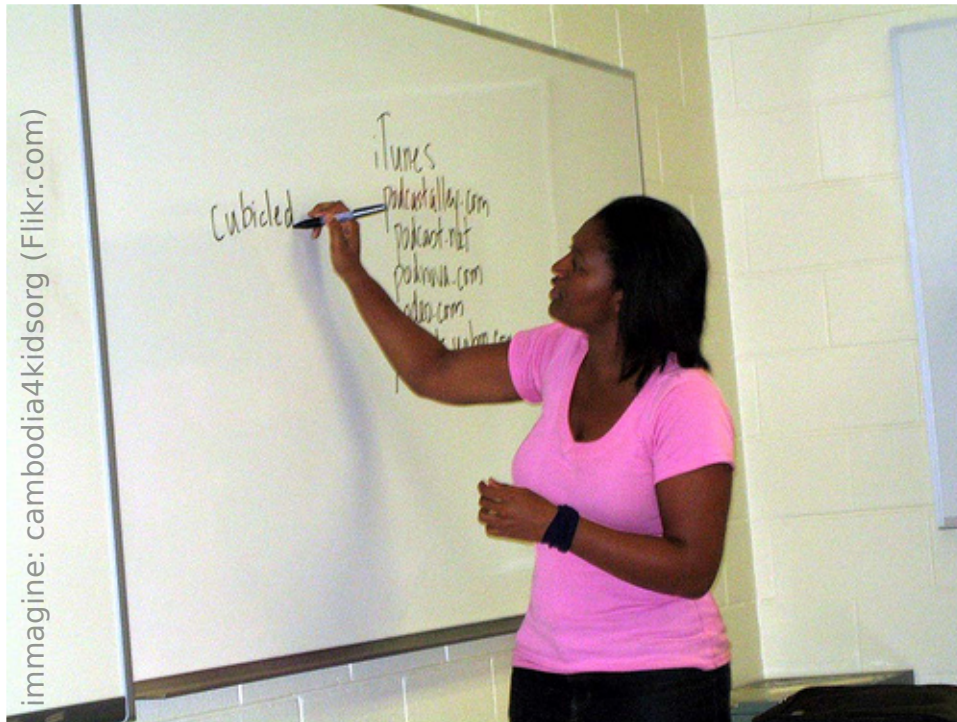 immagine: cambodia4kidsorg (Flikr.com)
iTunes
podcastalley.com
cubicled
podcast.net
podnova.com
odeo.com